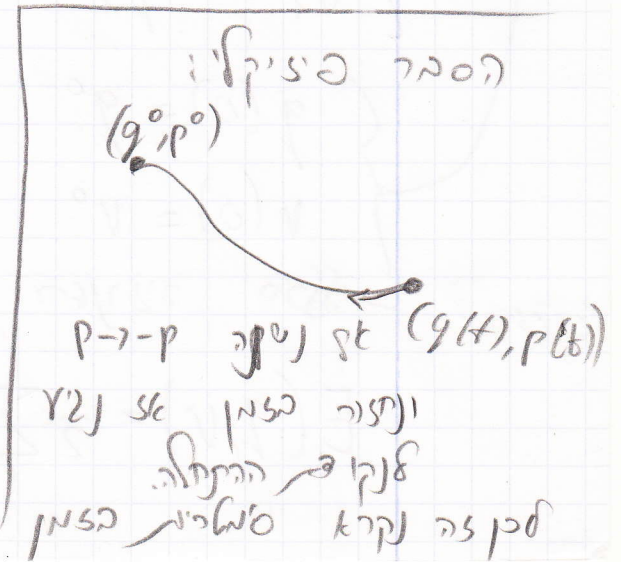 הסבר פיזיקלי:
(q°, p°)
(q(t), p(t)) אם נשנה p→-p
ונחזור בזמן אז נגיע
לנקודת ההתחלה.
לכן זה נקרא סימטרית בזמן